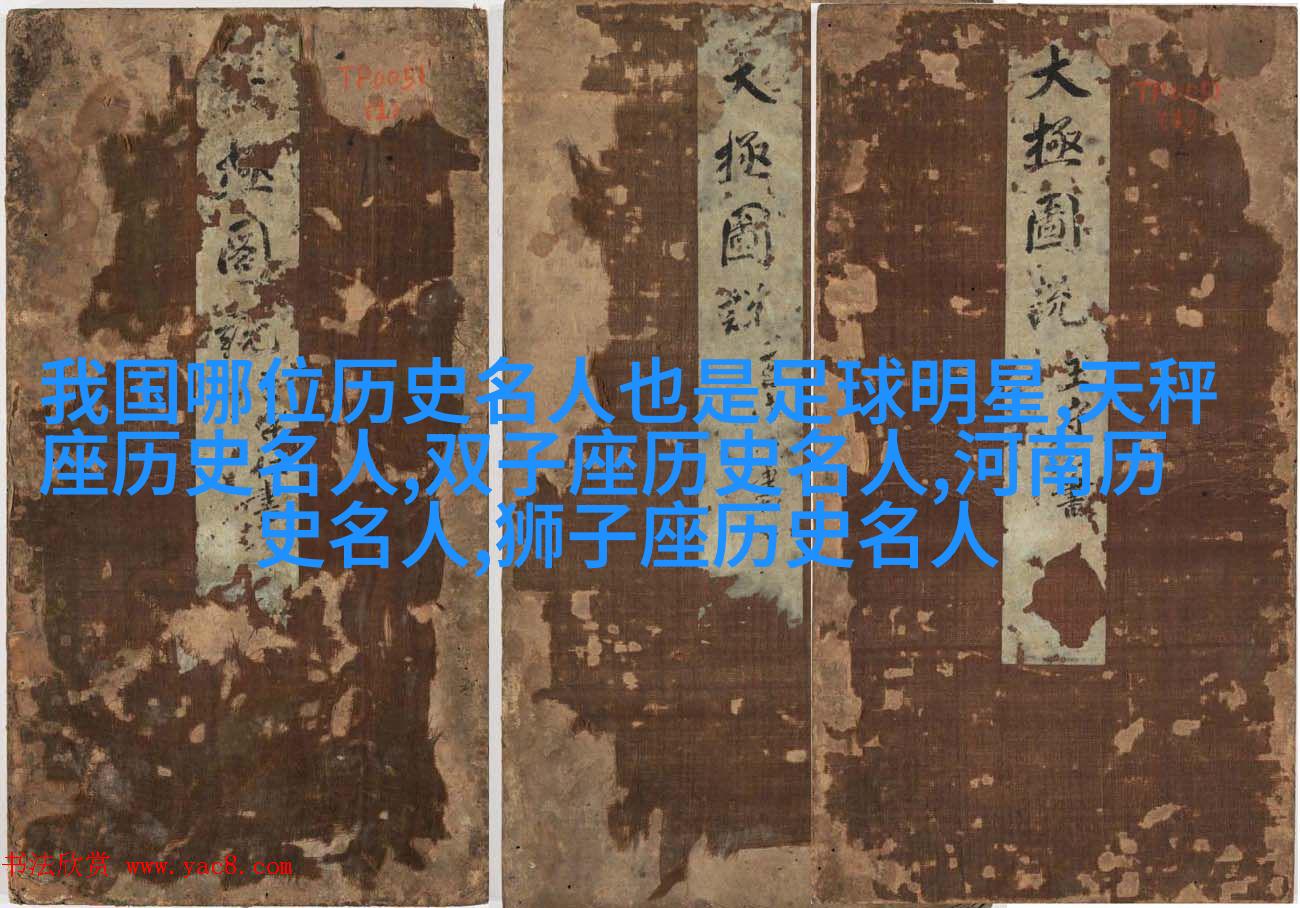 TP0051
(1)
極圖說
大極圖說
大極圖説
王守
書
我国哪位历史名人也是足球明星,天秤
座历史名人,双子座历史名人,河南历
史名人,狮子座历史名人
书法欣赏 www.yac8.com